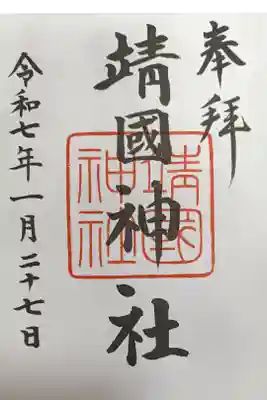 奉拝
靖國神社
靖國
神社
令和七年一月二十七日